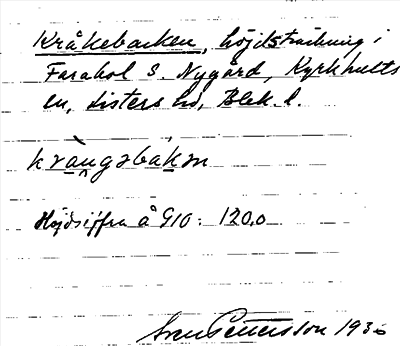 Kråkebacken, höjdsträckning i
Farabol S. Nygård, Kyrkhults
sn, Listers hd, Blek. l.
kràngəbakən
Höjdsiffra å G10: 120,0
Sven Pettersson 1936